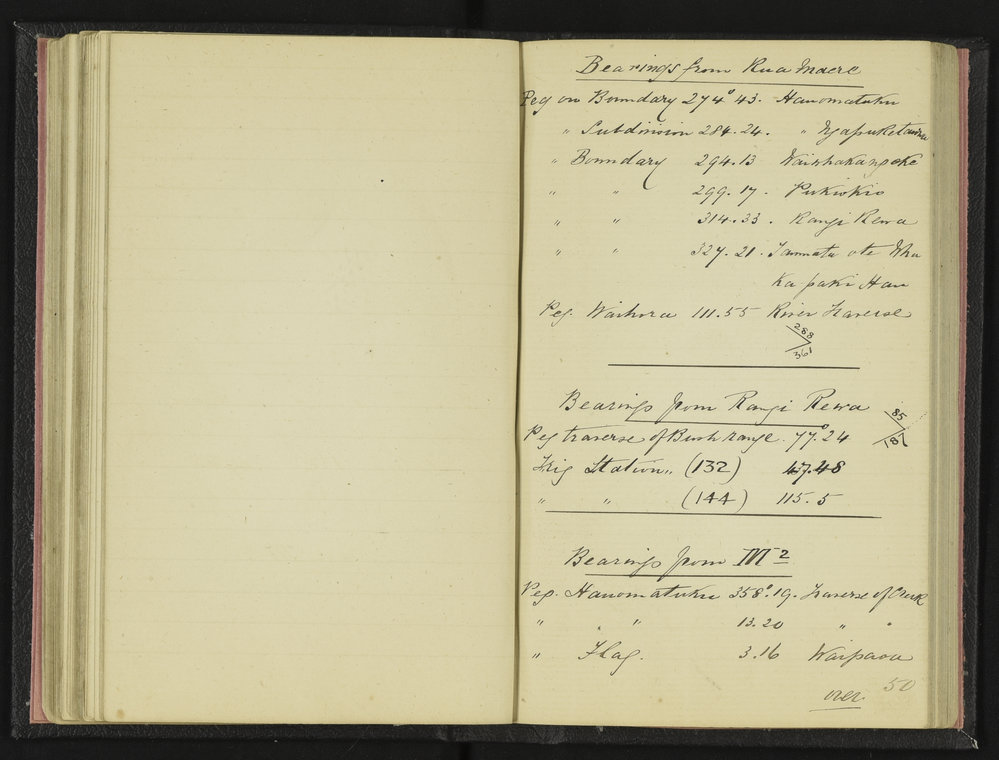 Bearings from Rua Maere
Peg on Boundary 274° 43. Hanomatuku
" Subdivision 284. 24. " Ngapuketurua
" Boundary 294. 13 Waiwhakangeke
" " 299. 17. Pukiokio
" " 314. 33. Rangi Rewa
" " 327. 21. Taumata ote Wha
ka paki Hau
Peg. Waihora 111. 55 River Traverse
288/361
Bearings from Rangi Rewa 85/187
Peg traverse of Bush range. 77° 24
Trig Station " (132) 47. 48
" " (144) 115. 5
Bearings from M 2
Peg. Hanomatuku 358°. 19. Traverse of Creek
" " " 13. 20 " "
" Flag. 3. 16 Waipaoa
50
over